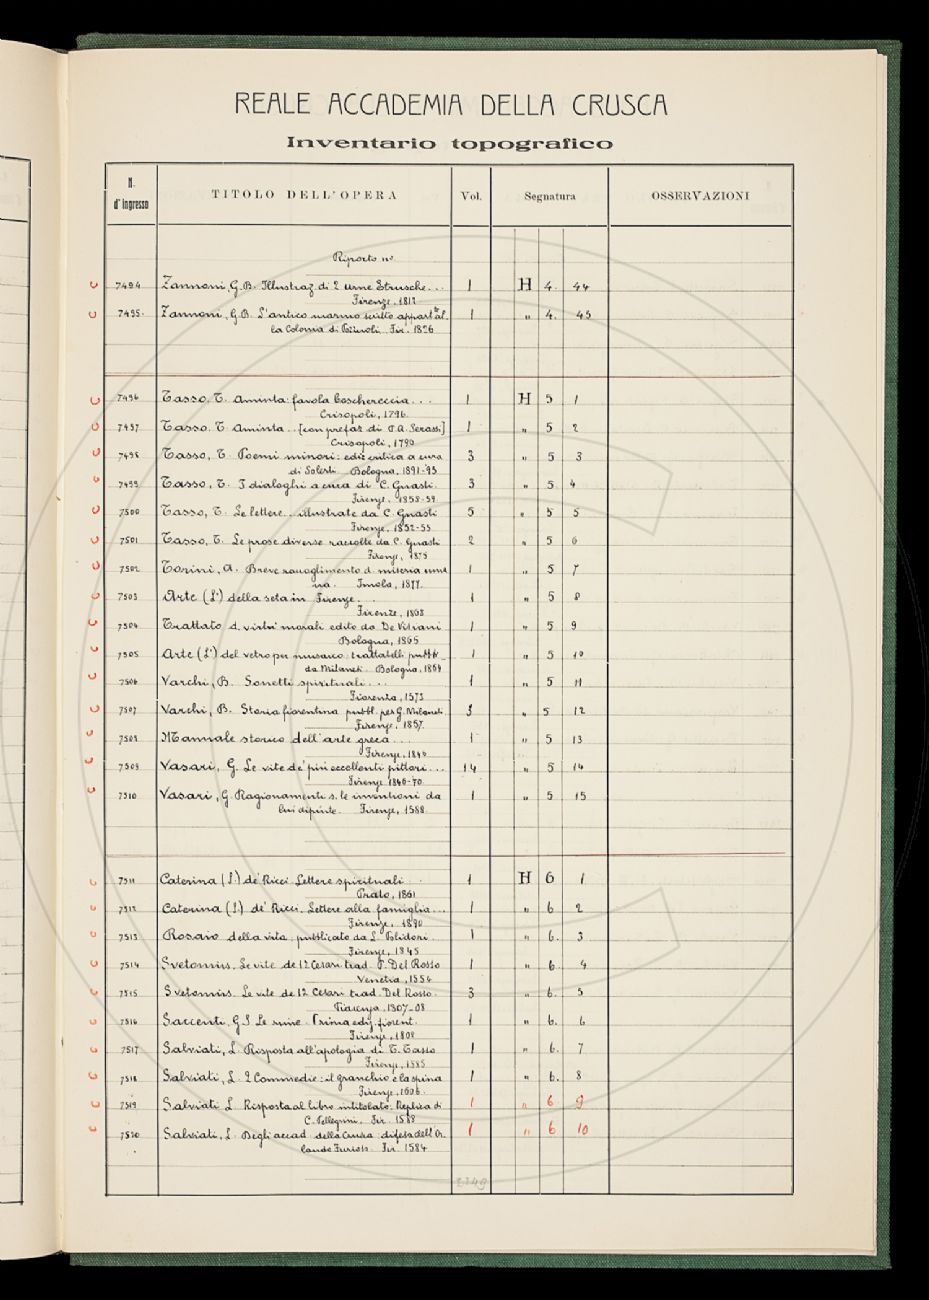 REALE ACCADEMIA DELLA CRUSCA
Inventario topografico
N. d'ingresso TITOLO DELL'OPERA Vol. Segnatura OSSERVAZIONI
Riporto nº
7494 Zannoni, G.B. Illustraz. di 2 urne Etrusche... 1 H 4. 44
Firenze, 1812
7495. Zannoni, G.B. L'antico marmo scritto appart. al 1 " 4. 45
la Colonia di Fir. 1826
7496 Tasso, T. Aminta: favola boschereccia... 1 H 5 1
Crisopoli, 1796.
7497 Tasso. T. Aminta.. [con prefaz. di P.A. Serassi] 1 " 5 2
Crisopoli, 1790
7498 Tasso, T. Poemi minori: ediz. critica a cura 3 " 5 3
di Solerti. Bologna, 1891-95
7499 Tasso, T. I dialoghi a cura di C. Guasti. 3 " 5 4
Firenze, 1858-59
7500 Tasso, T. Le lettere... illustrate da C. Guasti 5 " 5 5
Firenze, 1852-55
7501 Tasso, T. Le prose diverse raccolte da C. Guasti 2 " 5 6
Firenze, 1875
7502 Torini, A. Breve raccoglimento d. miseria uma 1 " 5 7
na. Imola, 1877.
7503 Arte (L') della seta in Firenze. 1 " 5 8
Firenze, 1868
7504 Trattato d. virtù morali edito da De Visiani 1 " 5 9
Bologna, 1865
7505 Arte (L') del vetro per musaico: trattatelli pubbl. 1 " 5 10
da Milanesi. Bologna, 1864
7506 Varchi, B. Sonetti spirituali... 1 " 5 11
Fiorenza, 1573
7507 Varchi, B. Storia fiorentina pubbl. per G. Milanesi 3 " 5 12
Firenze, 1857.
7508 Manuale storico dell'arte greca... 1 " 5 13
Firenze, 1846
7509 Vasari, G. Le vite de' più eccellenti pittori... 14 " 5 14
Firenze 1846-70.
7510 Vasari, G. Ragionamenti s. le inventioni da 1 " 5 15
lui dipinte. Firenze, 1588.
7511 Caterina (S.) de' Ricci. Lettere spirituali 1 H 6 1
Prato, 1861
7512 Caterina (S.) de' Ricci. Lettere alla famiglia... 1 " 6 2
Firenze, 1890
7513 Rosaio della vita: pubblicato da L. Polidori. 1 " 6. 3
Firenze, 1845
7514 Svetonius. Le vite de 12 Cesari trad. P. Del Rosso 1 " 6. 4
Venetia, 1554
7515 Svetonius. Le vite de 12 Cesari trad. Del Rosso. 3 " 6. 5
Piacenza, 1807-08
7516 Saccenti, G.S. Le rime. Prima ediz. fiorent. 1 " 6. 6
Firenze, 1808
7517 Salviati, L. Risposta all'apologia di T. Tasso 1 " 6. 7
Firenze, 1585
7518 Salviati, L. 2 Commedie: il granchio e la spina 1 " 6. 8
Firenze, 1606.
7519 Salviati L. Risposta al libro intitolato: Replica di 1 " 6 9
C. Pellegrini. Fir. 1588
7520 Salviati, L. Degli accad. della Crusca: difesa dell'Or 1 " 6 10
lando Furioso. Fir. 1584